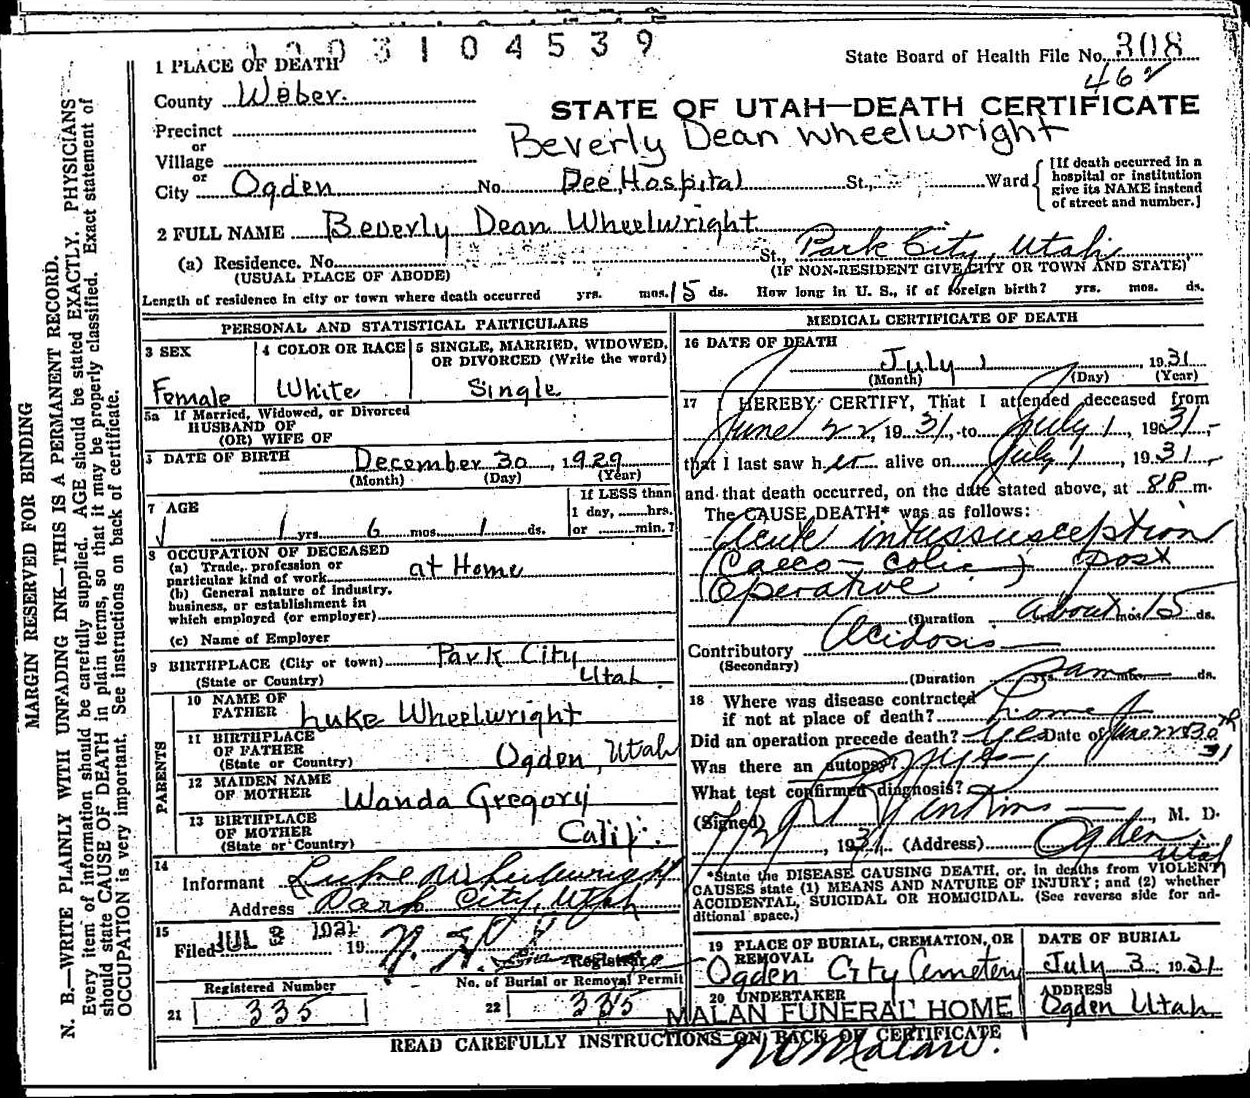 1303104539
State Board of Health File No. 308
462
1 PLACE OF DEATH
County Weber.
STATE OF UTAH—DEATH CERTIFICATE
Precinct
or
Beverly Dean Wheelwright
Village
or
City Ogden No. Dee Hospital St., Ward
[If death occurred in a
hospital or institution
give its NAME instead
of street and number.]
2 FULL NAME Beverly Dean Wheelwright
(a) Residence. No. St., Park City, Utah
(USUAL PLACE OF ABODE) (IF NON-RESIDENT GIVE CITY OR TOWN AND STATE)
Length of residence in city or town where death occurred yrs. mos. 15 ds. How long in U. S., if of foreign birth? yrs. mos. ds.
PERSONAL AND STATISTICAL PARTICULARS
3 SEX
Female
4 COLOR OR RACE
White
5 SINGLE, MARRIED, WIDOWED,
OR DIVORCED (Write the word)
Single
5a If Married, Widowed, or Divorced
HUSBAND OF
(OR) WIFE OF
DATE OF BIRTH December 30, 1929
(Month) (Day) (Year)
7 AGE
1 yrs 6 mos. 1 ds.
If LESS than
1 day, hrs.
or min.?
8 OCCUPATION OF DECEASED
(a) Trade, profession or
particular kind of work at Home
(b) General nature of industry,
business, or establishment in
which employed (or employer)
(c) Name of Employer
9 BIRTHPLACE (City or town) Park City
(State or Country) Utah
PARENTS
10 NAME OF
FATHER Luke Wheelwright
11 BIRTHPLACE
OF FATHER
(State or Country) Ogden, Utah
12 MAIDEN NAME
OF MOTHER Wanda Gregory
13 BIRTHPLACE
OF MOTHER
(State or Country) Calif.
14
Informant Luke Wheelwright
Address Park City, Utah
15
Filed JUL 3 1931 19
Registrar
Registered Number
21 335
No. of Burial or Removal Permit
22 335
MEDICAL CERTIFICATE OF DEATH
16 DATE OF DEATH
July 1, 1931
(Month) (Day) (Year)
17 I HEREBY CERTIFY, That I attended deceased from
June 22, 1931, to July 1, 1931,
that I last saw her alive on July 1, 1931,
and that death occurred, on the date stated above, at 8 P m.
The CAUSE DEATH* was as follows:
Acute intussusception
(Caeco-Colic) post
Operative
(Duration about mos. 15 ds.
Contributory Acidosis
(Secondary)
(Duration Same ds.
18 Where was disease contracted
if not at place of death? home
Did an operation precede death? yes Date of June
Was there an autopsy?
What test confirmed diagnosis?
(Signed) Jenkins, M. D.
7/2, 1931 (Address) Ogden Utah
*State the DISEASE CAUSING DEATH, or, in deaths from VIOLENT
CAUSES state (1) MEANS AND NATURE OF INJURY; and (2) whether
ACCIDENTAL, SUICIDAL OR HOMICIDAL. (See reverse side for ad-
ditional space.)
19 PLACE OF BURIAL, CREMATION, OR
REMOVAL
Ogden City Cemetery
DATE OF BURIAL
July 3, 1931
20 UNDERTAKER
MALAN FUNERAL HOME
ADDRESS
Ogden Utah
READ CAREFULLY INSTRUCTIONS ON BACK OF CERTIFICATE
MARGIN RESERVED FOR BINDING
N. B.—WRITE PLAINLY WITH UNFADING INK—THIS IS A PERMANENT RECORD.
Every item of information should be carefully supplied. AGE should be stated EXACTLY. PHYSICIANS
should state CAUSE OF DEATH in plain terms, so that it may be properly classified. Exact statement of
OCCUPATION is very important. See instructions on back of certificate.